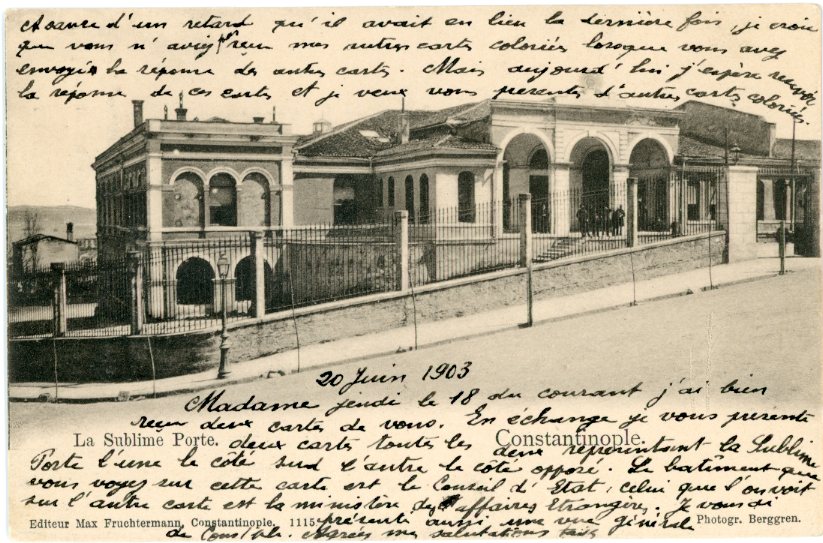 A cause d'un retard qu'il avait eu lieu la dernière fois, je crois
que vous n'aviez reçu mes autres cartes coloriées lorsque vous avez
envoyé la réponse des autres cartes. Mais aujourd'hui j'espère recevoir
la réponse de ces cartes et je veux vous présenter d'autres cartes coloriées.
20 Juin 1903
Madame jeudi le 18 du courant j'ai bien
reçu deux cartes de vous. En échange je vous présente
La Sublime Porte. Constantinople.
deux cartes toutes les deux représentant la Sublime
Porte l'une le côté sud l'autre le côté opposé. Le bâtiment que
vous voyez sur cette carte est le Conseil d'Etat, celui que l'on voit
sur l'autre carte est la ministère des affaires Etrangères. Je vous
présente aussi une vue générale
Editeur Max Fruchtermann, Constantinople. 1115 Photogr. Berggren.
de Const/ple. Agréez mes salutations